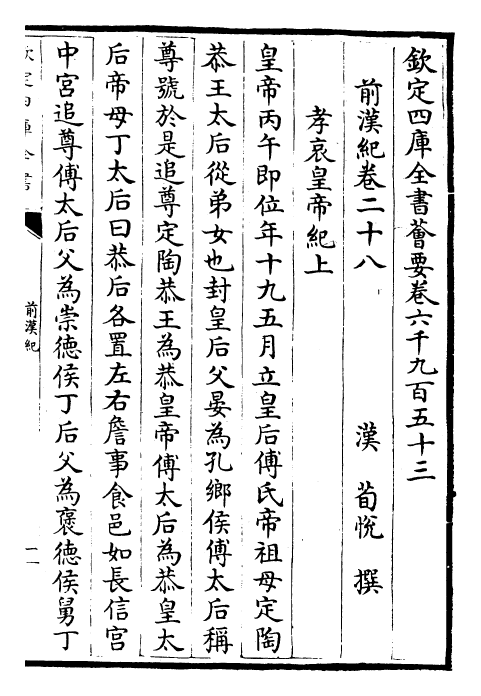 欽定四庫全書薈要卷六千九百五十三
前漢紀卷二十八
漢 荀悅 撰
孝哀皇帝紀上
皇帝丙午即位年十九五月立皇后傅氏帝祖母定陶
恭王太后從弟女也封皇后父晏為孔鄉侯傅太后稱
尊號於是追尊定陶恭王為恭皇帝傅太后為恭皇太
后帝母丁太后曰恭后各置左右詹事食邑如長信宮
中宮追尊傅太后父為崇德侯丁后父為褒德侯舅丁
前漢紀
一